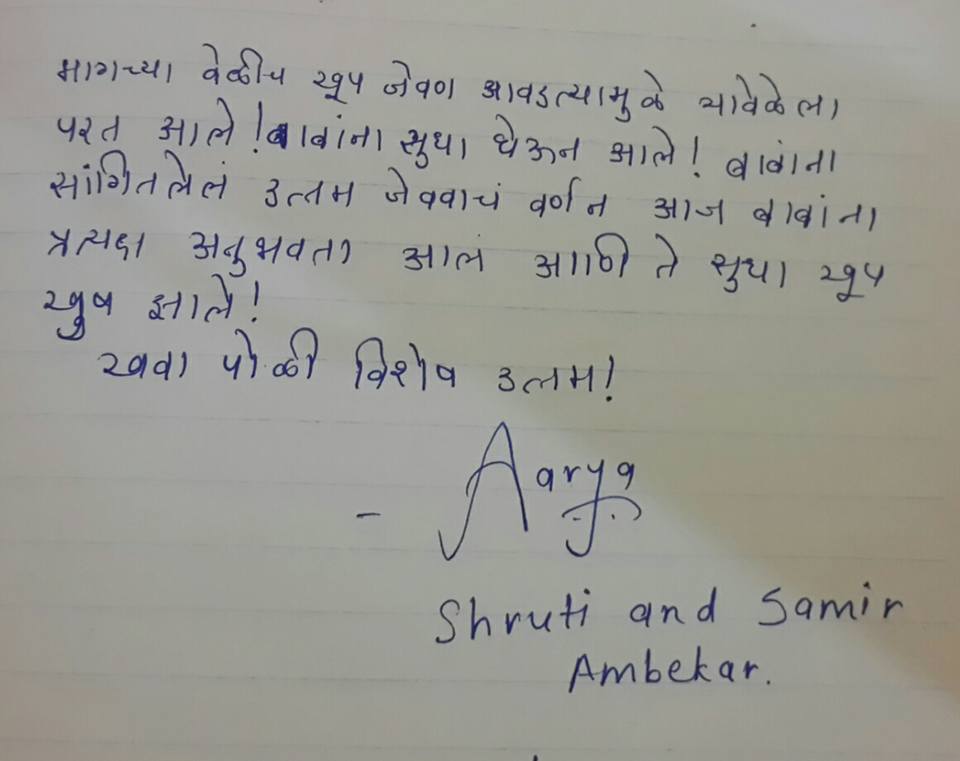 मागच्या वेळीच खूप जेवण आवडल्यामुळे यावेळेला
परत आले! बाबांना सुधा घेऊन आले! बाबांना
सांगितलेलं उत्तम जेववाचं वर्णन आज बाबांना
प्रत्यक्ष अनुभवता आलं आणि ते सुधा खूप
खुष झाले!
खवा पोळी विशेष उत्तम!
- Aarya
Shruti and Samir
Ambekar.